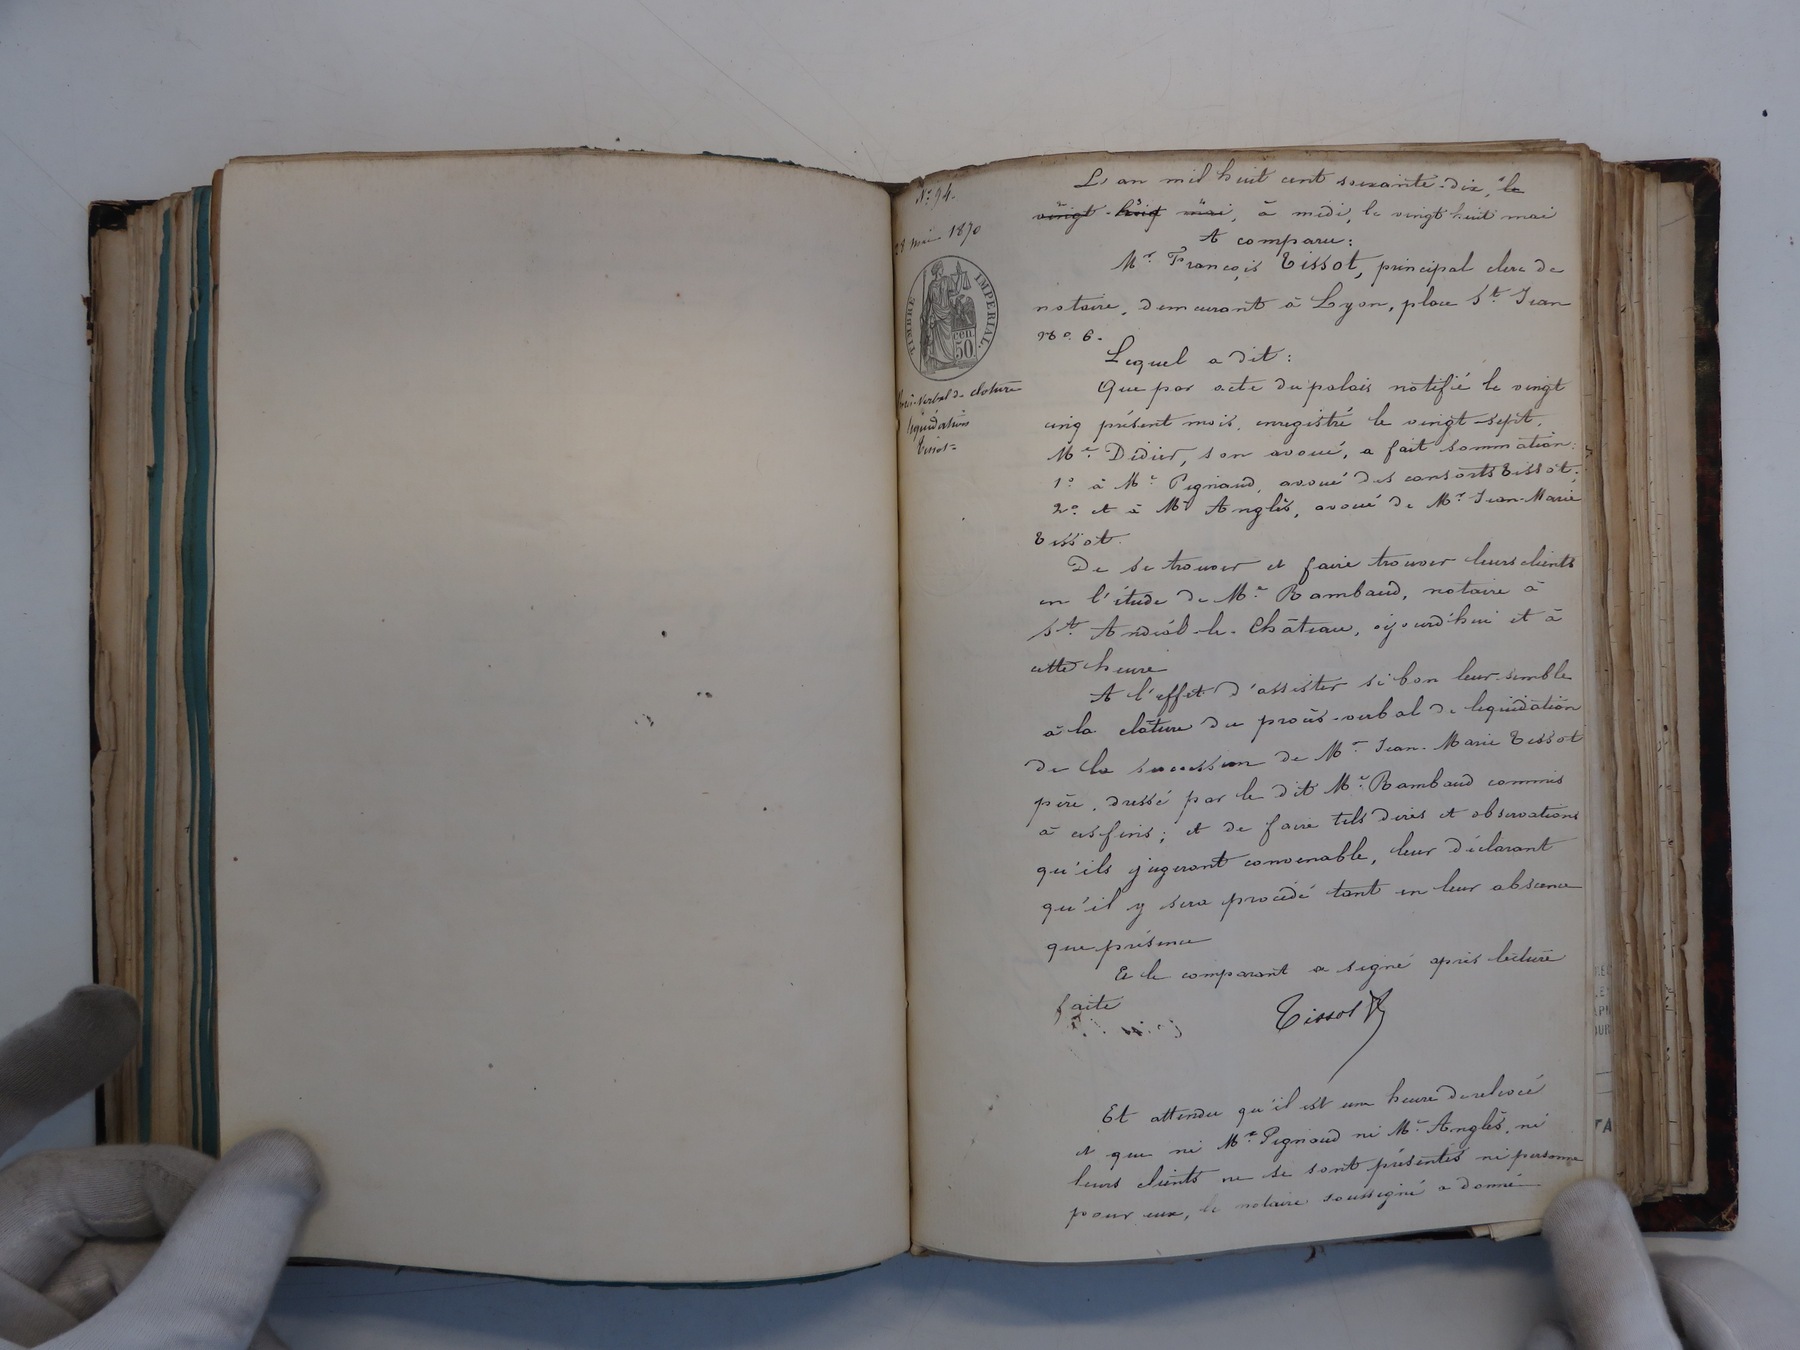 N° 94.
28 mai 1870
TIMBRE IMPERIAL.
50 cen
Procès-Verbal de cloture
liquidation
Tissot
L'an mil huit cent soixante-dix, le
vingt-huit mai, à midi, le vingt huit mai
A comparu:
Mr. François Tissot, principal clerc de
notaire, demeurant à Lyon, place St. Jean
No. 6.
Lequel a dit:
Que par acte du palais notifié le vingt
cinq présent mois, enregistré le vingt-sept,
Me. Didier, son avoué, a fait sommation:
1° à Me. Pignaud, avoué des consorts Tissot;
2° et à Me Anglès, avoué de Mr. Jean-Marie
Tissot.
De se trouver et faire trouver leurs clients
en l'étude de Me. Rambaud, notaire à
St. Andéol-le-Château, aujourd'hui et à
cette heure
A l'effet d'assister si bon leur semble
à la clôture du procès-verbal de liquidation
de la succession de Mr. Jean-Marie Tissot
père, dressé par le dit Me. Rambaud commis
à ces fins; et de faire tels dires et observations
qu'ils jugeront convenable, leur déclarant
qu'il y sera procédé tant en leur absence
que présence
Et le comparant a signé après lecture
faite
Tissot
Et attendu qu'il est une heure de relevée
et que ni Me. Pignaud ni Me. Anglès, ni
leurs clients ne se sont présentés ni personne
pour eux, le notaire soussigné a donné